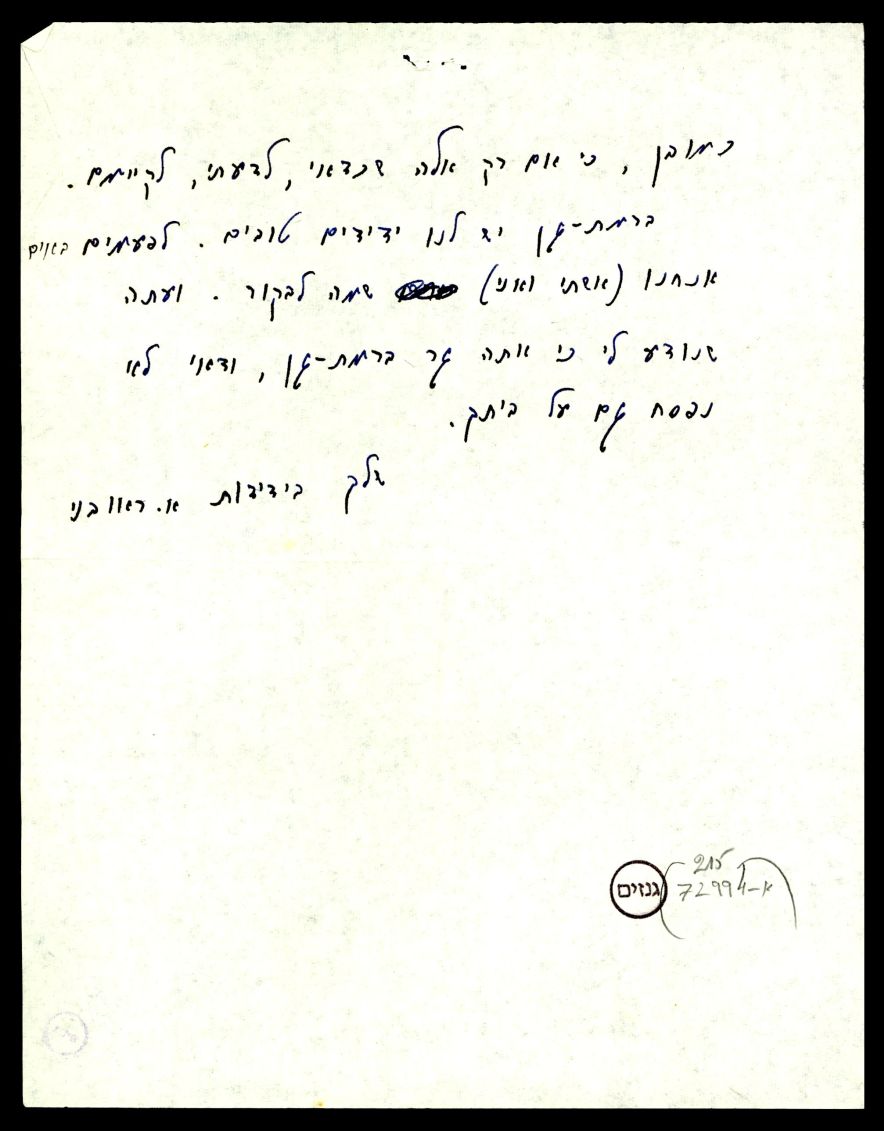 כמובן, כי אם רק אלה שכדאי, לדעתי, לקיימם.
ברמת-גן יש לנו ידידים טובים. לפעמים באים
אנחנו (אשתי ואני) שמה לבקור. ועתה
שנודע לי כי אתה גר ברמת-גן, ודאי לא
נפסח גם על ביתך.
שלך בידידות א. ראובני
גנזים
215
72994-א